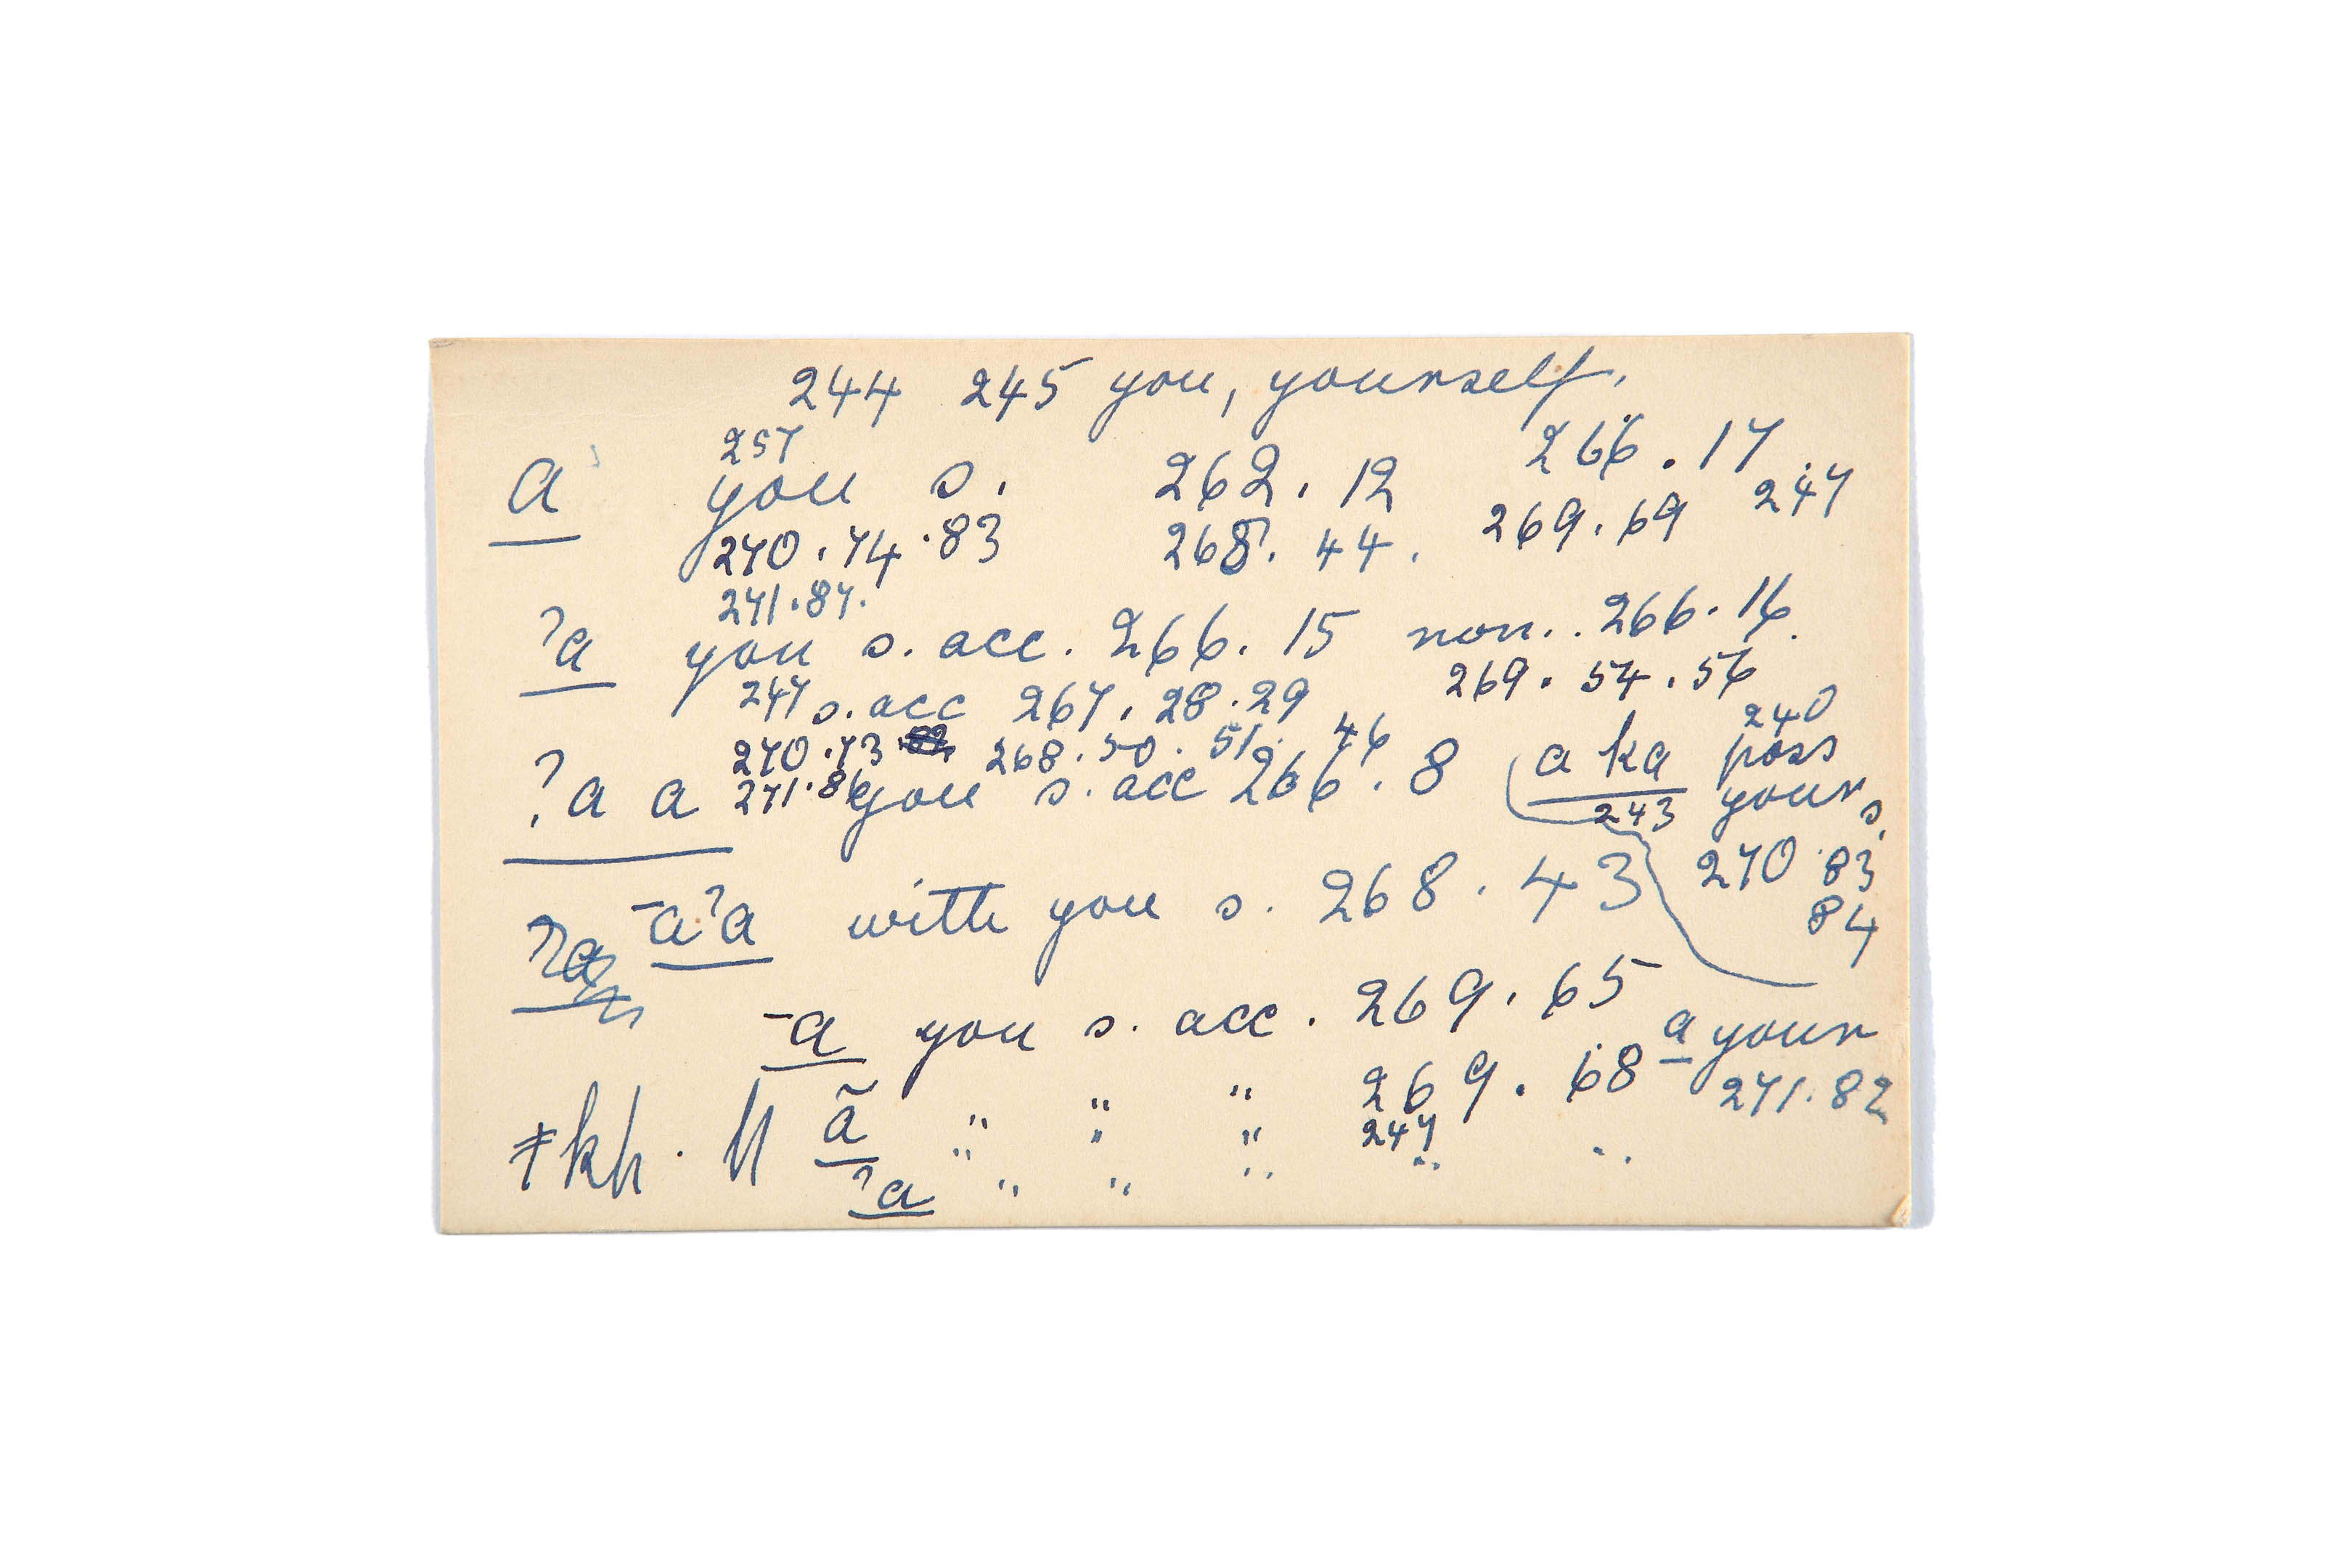 244 245 you, yourself.
257 266.17
a you s. 262.12 247
270.74.83 268.44. 269.69
271.87.
ʔa you s. acc. 266.15 nom. 266.16.
247 s. acc 267.28.29 269.54.56
270.73 268.50.51. 46
ʔa a 271.86 you s. acc 266.8
a ka poss 240
243 your s.
270.83
84
-aʔa with you s. 268.43
ʔa
-a you s. acc. 269.65
a your
271.82
ǂkh. ǁ ã " " " 269.68
" " " 247
ʔa " " " " "